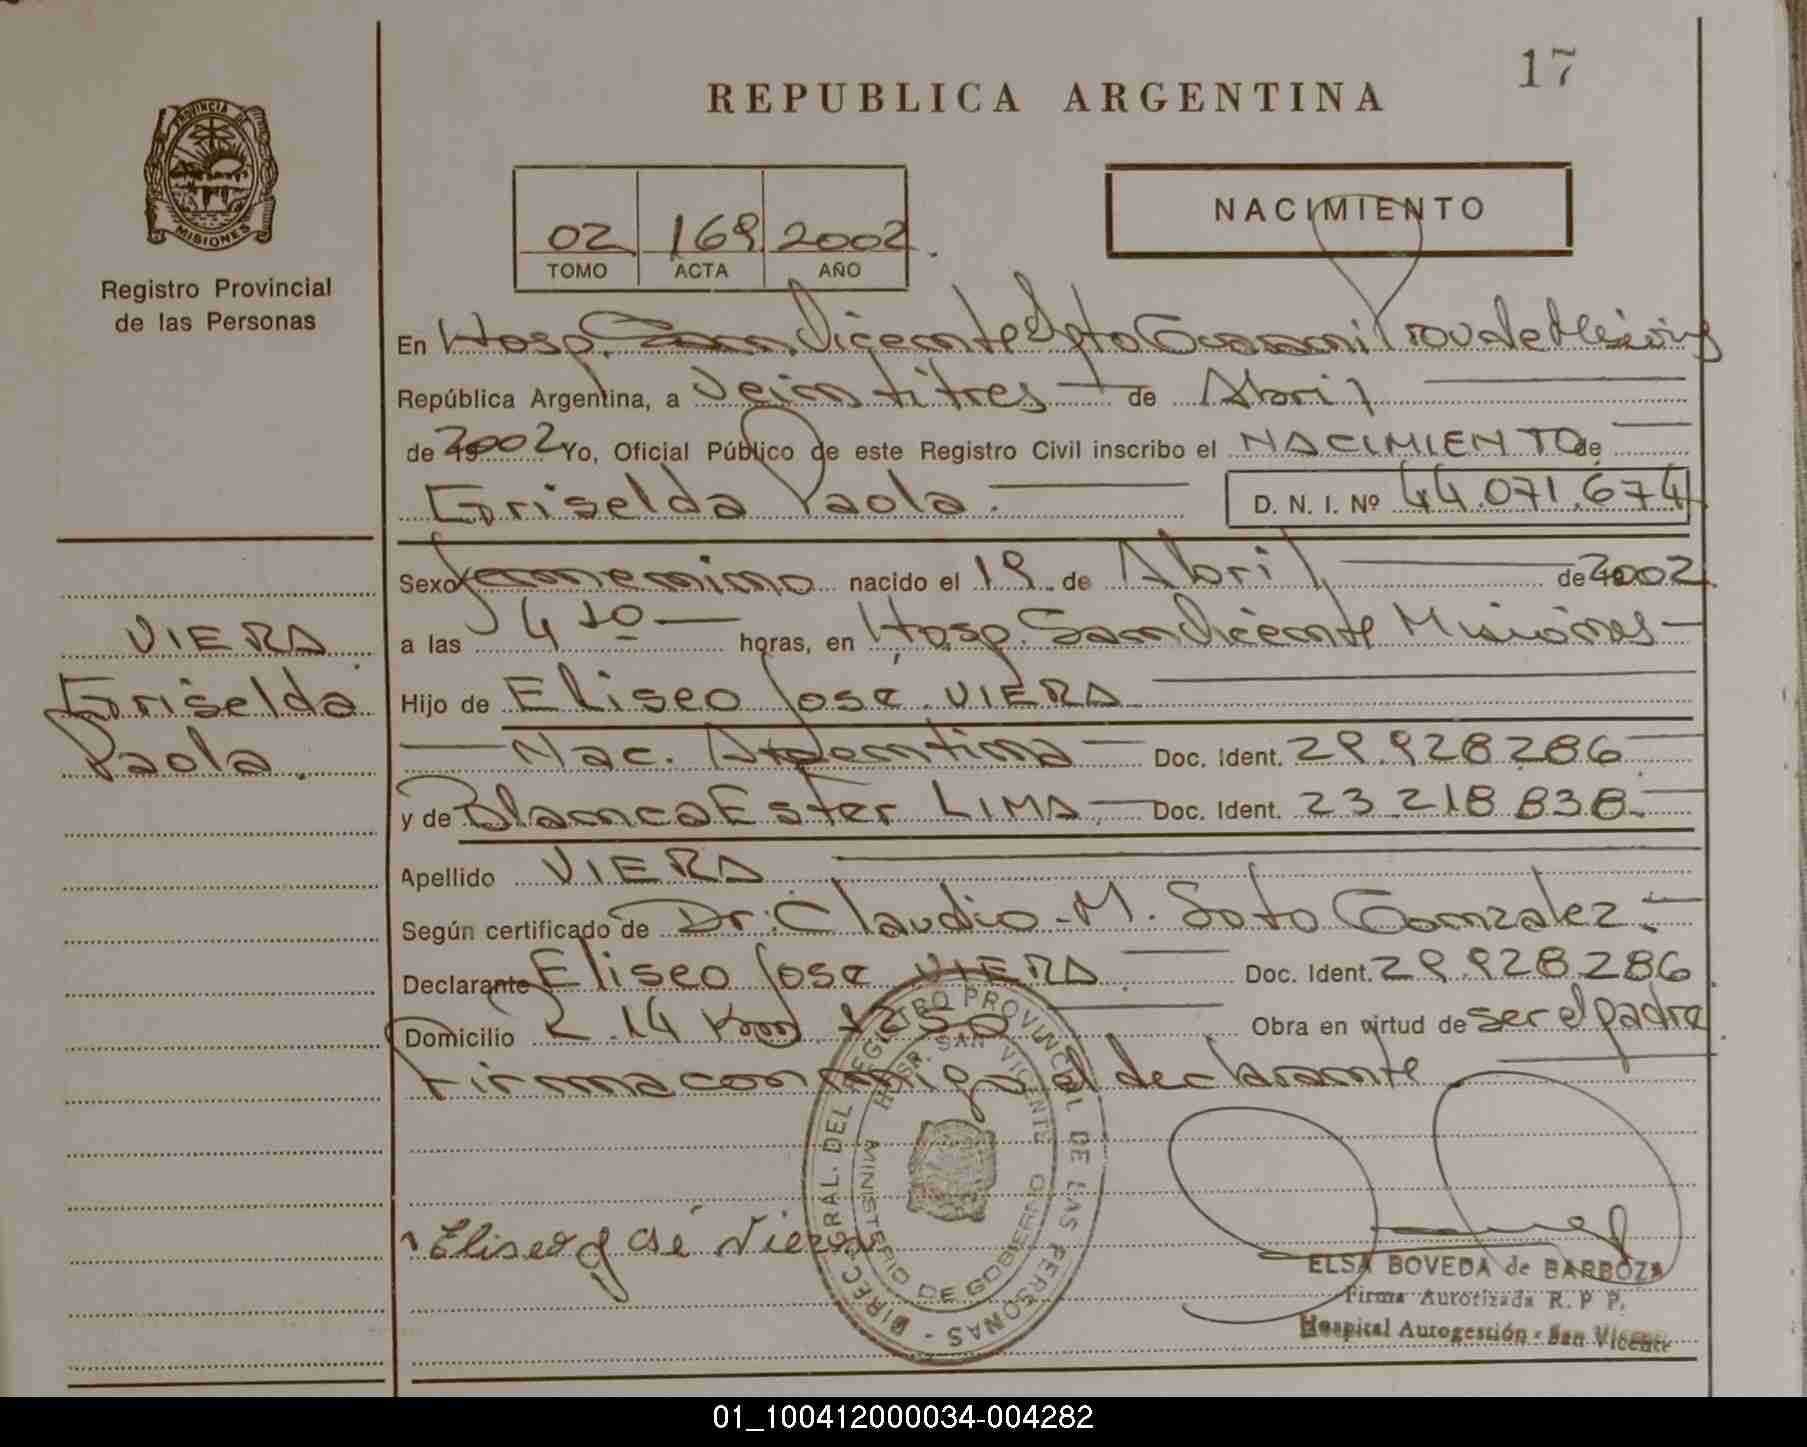 17
REPUBLICA ARGENTINA
PROVINCIA DE
MISIONES
Registro Provincial
de las Personas
02 169 2002
TOMO ACTA AÑO
NACIMIENTO
En Hosp. San Vicente Dpto Guarani Prov de Misiones
República Argentina, a Veintitres de Abril
de 2002 Yo, Oficial Público de este Registro Civil inscribo el NACIMIENTO de
Griselda Paola. D. N. I. Nº 44.071.674
Sexo femenino nacido el 19 de Abril de 2002
a las 4 10 horas, en Hosp. San Vicente Misiones
VIERA
Griselda
Paola.
Hijo de Eliseo José VIERA
Nac. Argentina Doc. Ident. 29.928.286
y de Blanca Ester LIMA Doc. Ident. 23.218.838
Apellido VIERA
Según certificado de Dr. Claudio M. Soto Gonzalez.
Declarante Eliseo José VIERA Doc. Ident. 29.928.286
Domicilio 2.14 Km 1250 Obra en virtud de ser el padre
Firma conmigo el declarante
DIREC. GRAL. DEL REGISTRO PROVINCIAL DE LAS PERSONAS -
HOSP. SAN VICENTE
MINISTERIO DE GOBIERNO
Eliseo José Viera
ELSA BOVEDA de BARBOZA
Firma Autorizada R. P P.
Hospital Autogestión - San Vicente
01_100412000034-004282